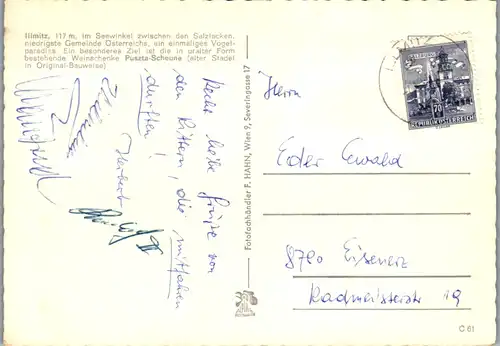 Illmitz, 117 m, im Seewinkel zwischen den Salzlacken,
niedrigste Gemeinde Österreichs, ein einmaliges Vogel-
paradies. Ein besonderes Ziel ist die in uralter Form
bestehende Weinschenke Puszta-Scheune (alter Stadel
in Original-Bauweise)
Recht liebe Grüße von
den Rittern, die mitfahren
durften!
Herbert
Fotofachhändler F. HAHN, Wien 9, Severingasse 17
70
REPUBLIK ÖSTERREICH
Herrn
Eder Ewald
8790 Eisenerz
Radmeisterstr 19
C 61